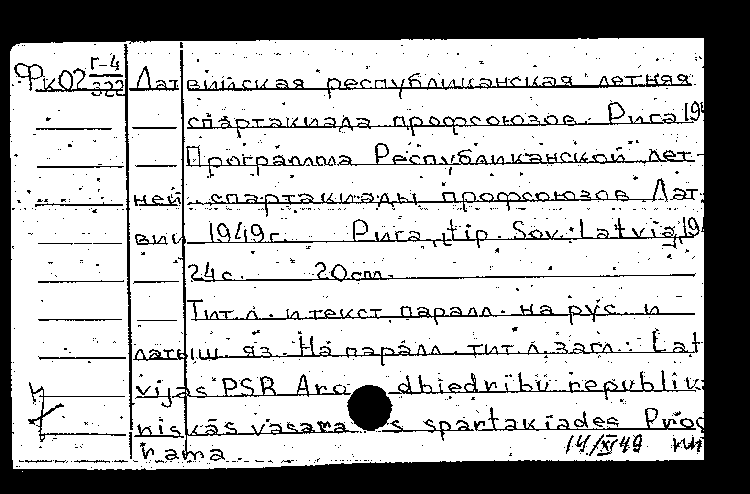 ФкО2 Г-4/322 Латвийская республиканская летняя
спартакиада профсоюзов. Рига 194
Программа Республиканской лет-
ней спартакиады профсоюзов Лат-
вии 1949г. Рига, tip. "Sov. Latvia", 194
24с. 20cm.
Тит. л. и текст паралл. на рус. и
латыш. яз. На паралл. тит. л. загл.: Lat
vijas PSR Aro dbiedrību republik
niskās vasara s spartakiades Prog
rama
14/XI 49